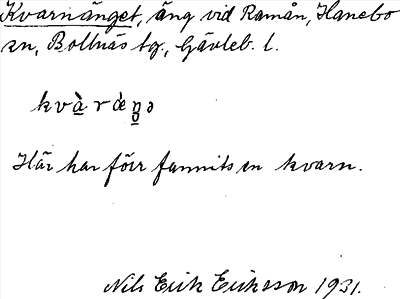 Kvarnänget, äng vid Ramån, Hanebo
sn, Bollnäs tg., Gävleb. l.
kvàràŋə
Här har förr funnits en kvarn.
Nils Erik Eriksson 1931.